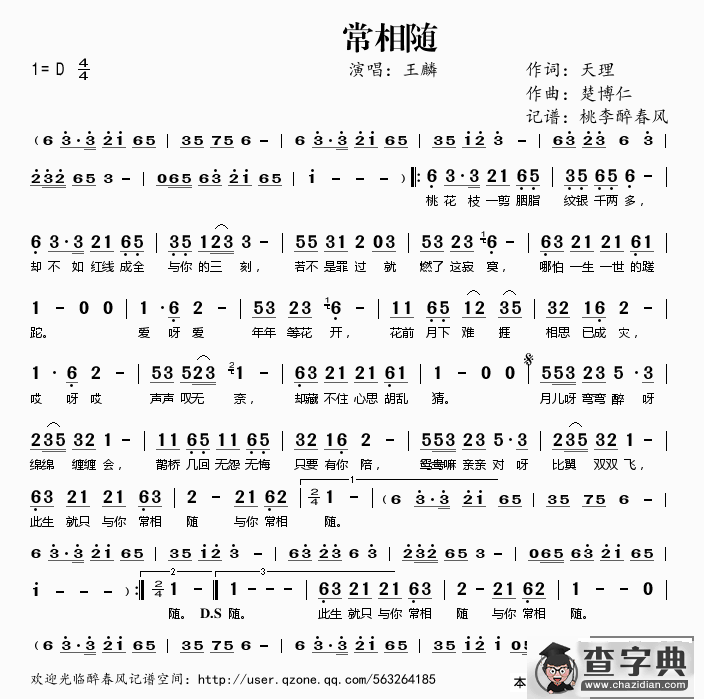 常相随
1=D 4/4 演唱：王麟 作词：天理
作曲：楚博仁
记谱：桃李醉春风
(6 3·3 21 65 | 35 75 6 - | 6 3·3 21 65 | 35 12 3 - | 63 23 6 3 |
232 65 3 - | 065 63 21 65 | 1 - - ) ‖: 6 3·3 21 65 | 35 35 6 - |
桃 花 枝 一剪 胭脂 纹银 千两 多，
6 3·3 21 65 | 35 123 3 - | 55 31 2 03 | 53 23 16· - | 63 21 21 61 |
却 不 如 红线 成全 与你 的三 刻， 若不 是罪 过 就 燃了 这寂 寞， 哪怕 一生 一世 的蹉
1 - 0 0 | 1 ·6 2 - | 53 23 16 - | 11 65 12 35 | 32 16 2 - |
跎。 爱 呀 爱 年年 等花 开， 花前 月下 难 捱 相思 已成 灾，
1 · 6 2 - | 53 523 21 - | 63 21 21 61 | 1 - 0 0 | 553 23 5 ·3 |
哎 呀 哎 声声 叹无 奈， 却藏 不住 心思 胡乱 猜。 月儿呀 弯弯 醉 呀
235 32 1 - | 11 65 11 65 | 32 16 2 - | 553 23 5·3 | 235 32 1 - |
绵绵 缠缠 会， 鹊桥 几回 无怨 无悔 只要 有你 陪， 鸳鸯嘛 亲亲 对 呀 比翼 双双 飞，
63 21 21 63 | 2 - 21 62 | 2/4 1 - | (6 3·3 21 65 | 35 75 6 - |
1
此生 就只 与你 常相 随 与你 常相 随。
6 3·3 21 65 | 35 12 3 - | 63 23 6 3 | 232 65 3 - | 065 63 21 65 |
1 - - ) :‖ 2/4 1 - ‖ 1 - - - | 63 21 21 63 | 2 - 21 62 | 1 - - 0 |
2 3
随。 D.S 随。 此生 就只 与你 常相 随 与你 常相 随。
(6 3·3 21 65 | 35 75 6 - | 6 3·3 21 65 | 35 12 3 - | 63 23 6 3 | 232 65 3 - | 065
欢迎光临醉春风记谱空间：http://user.qzone.qq.com/563264185 本
查字典
www.chazidian.com